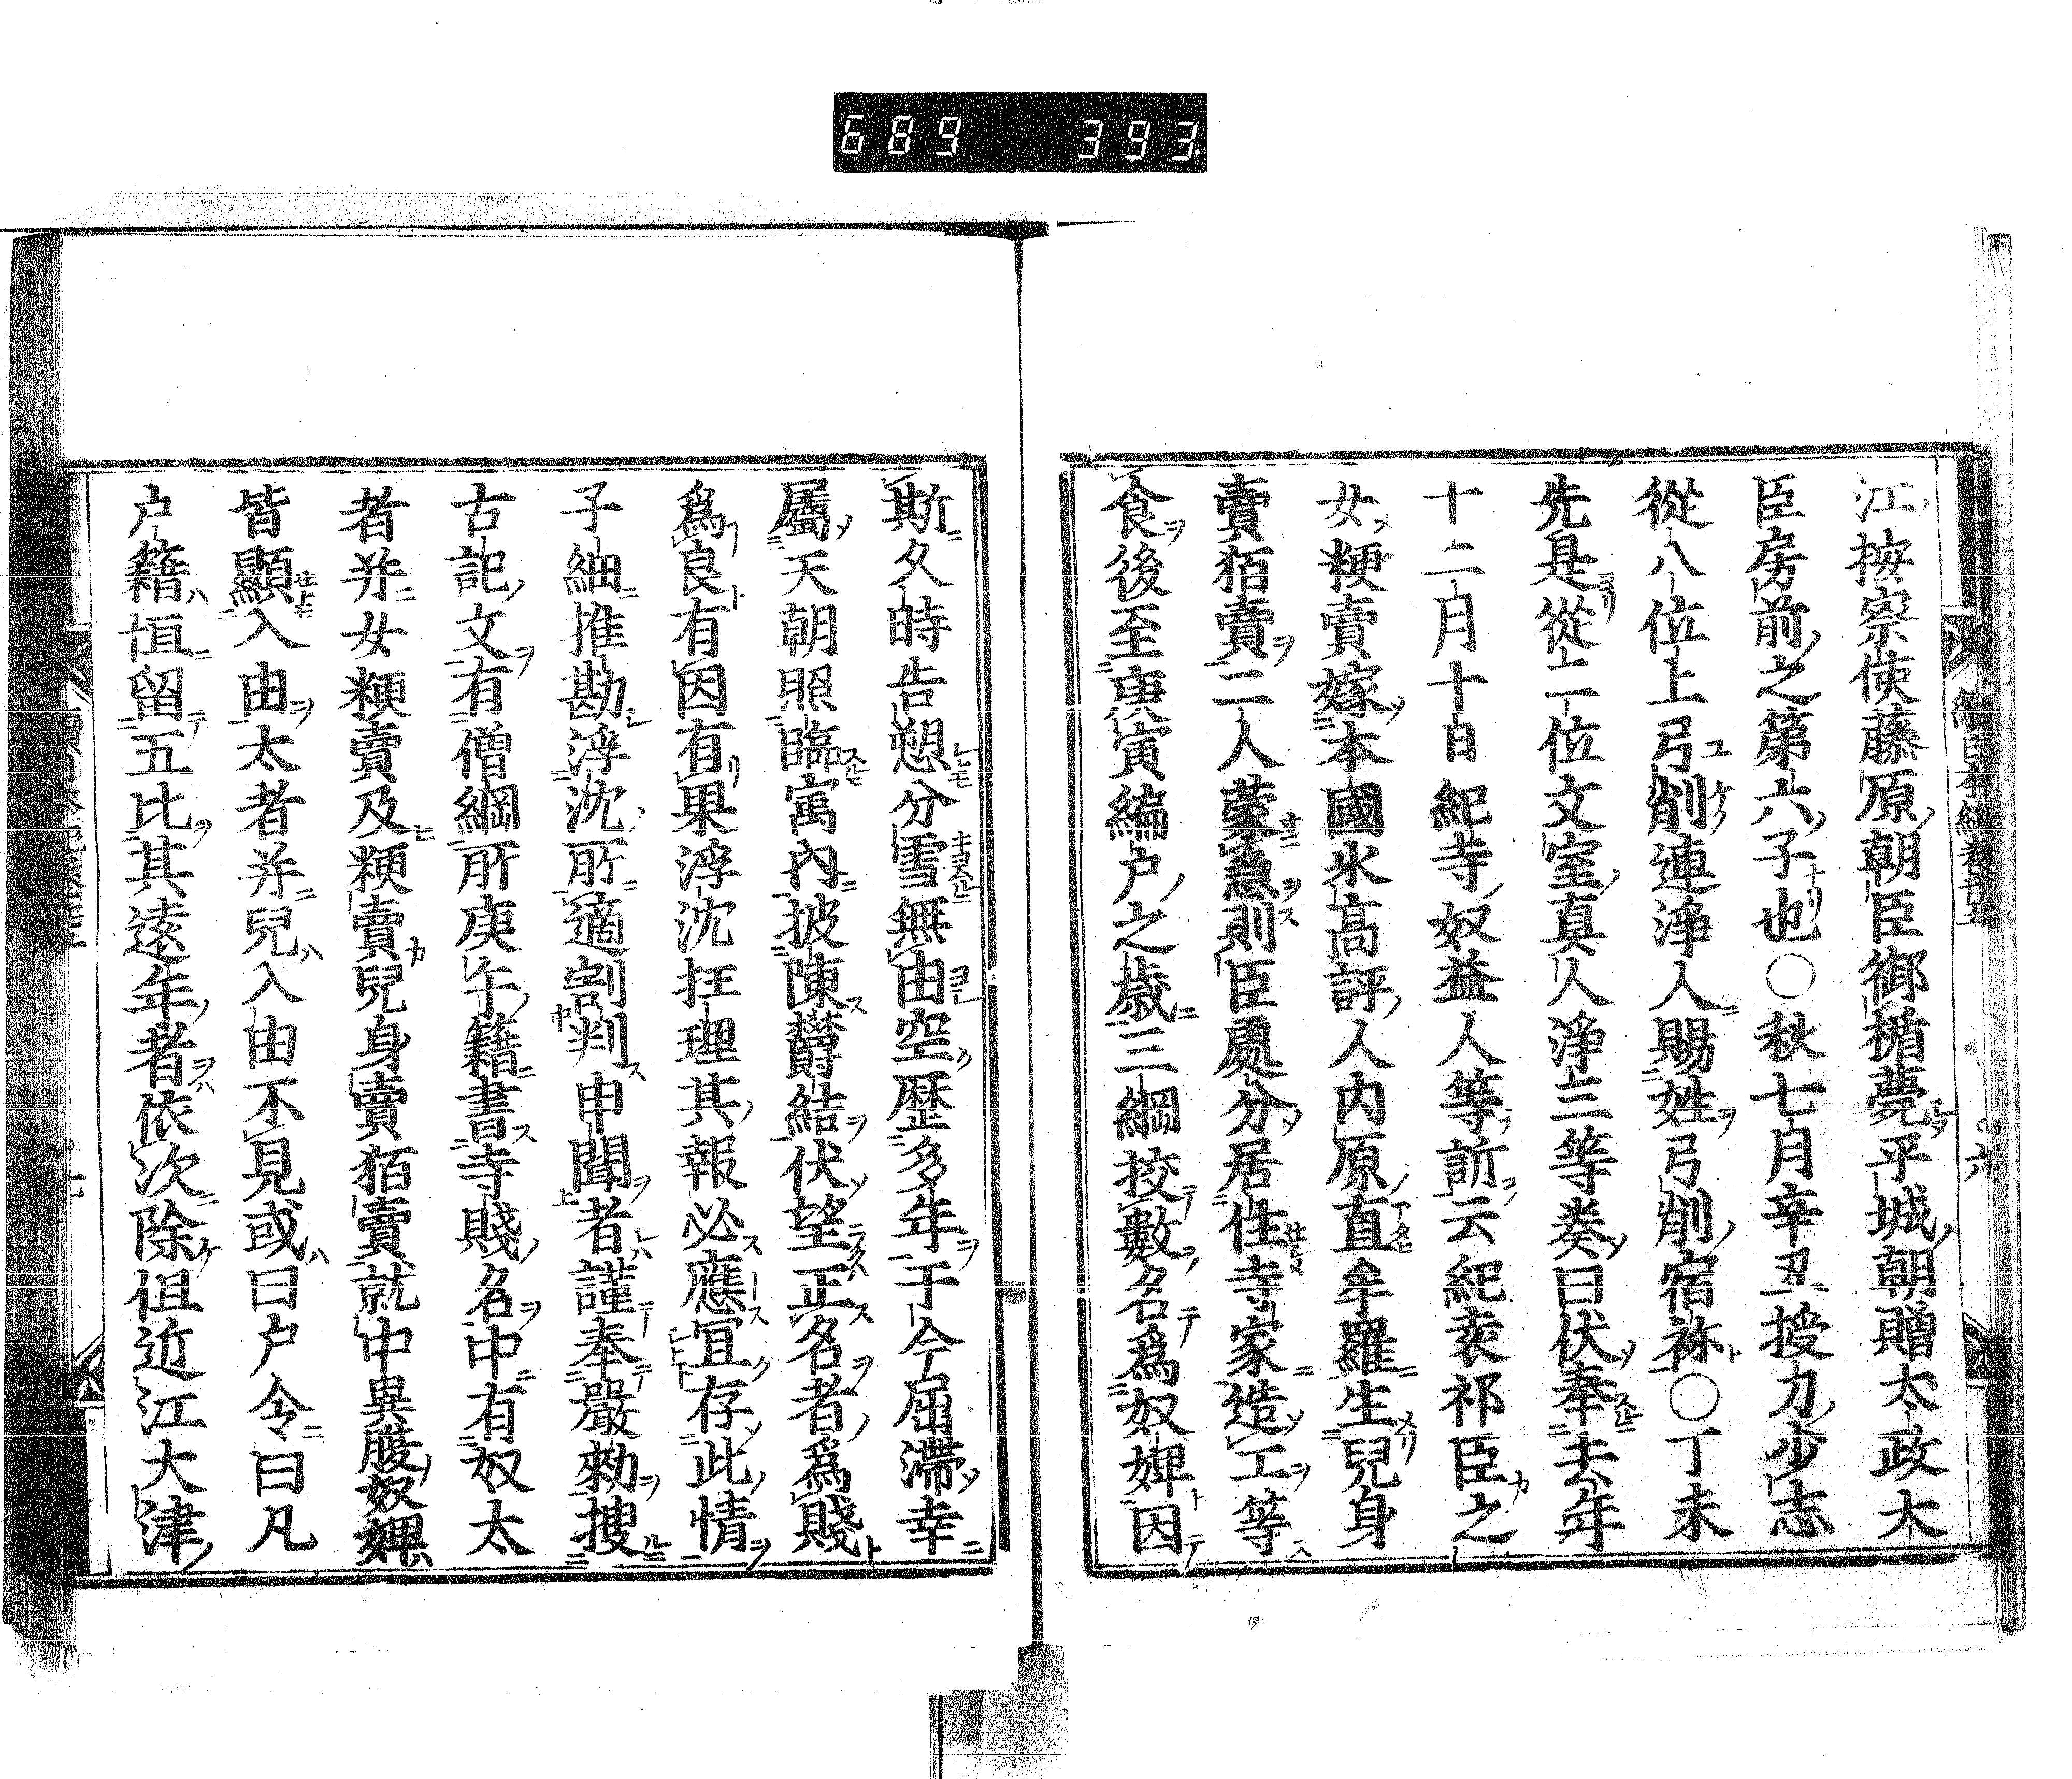 689 393
江按察使藤原朝臣御楯薨平城朝贈太政大
臣房前之第六子也○秋七月辛丑授刀少志
從八位上弓削連淨人賜姓弓削宿祢○丁未
先是從二位文室真人淨三等奏曰伏奉去年
十二月十日紀寺奴益人等訴云紀袁祁臣之
女粳賣嫁本國氷高評人内原直牟羅生兒身
賣狛賣二人蒙急則臣處分居住寺家造工等
食後至庚寅編户之歳三綱挍數名爲奴婢因
斯久時告愬分雪無由空歴多年于今屈滯幸
屬天朝照臨寓內披陳欝結伏望正名者爲賤
爲良有因有果浮沈任理其報必應宜存此情
子細推勘浮沈所適剖判申聞者謹奉嚴勑搜
古記文有僧綱所庚午籍書寺賤名中有奴太
者并女粳賣及粳賣兒身賣狛賣就中異腹奴婢
皆顯入由太者并兒入由不見或曰户令曰凡
户籍恒留五比其遠年者依次除但近江大津